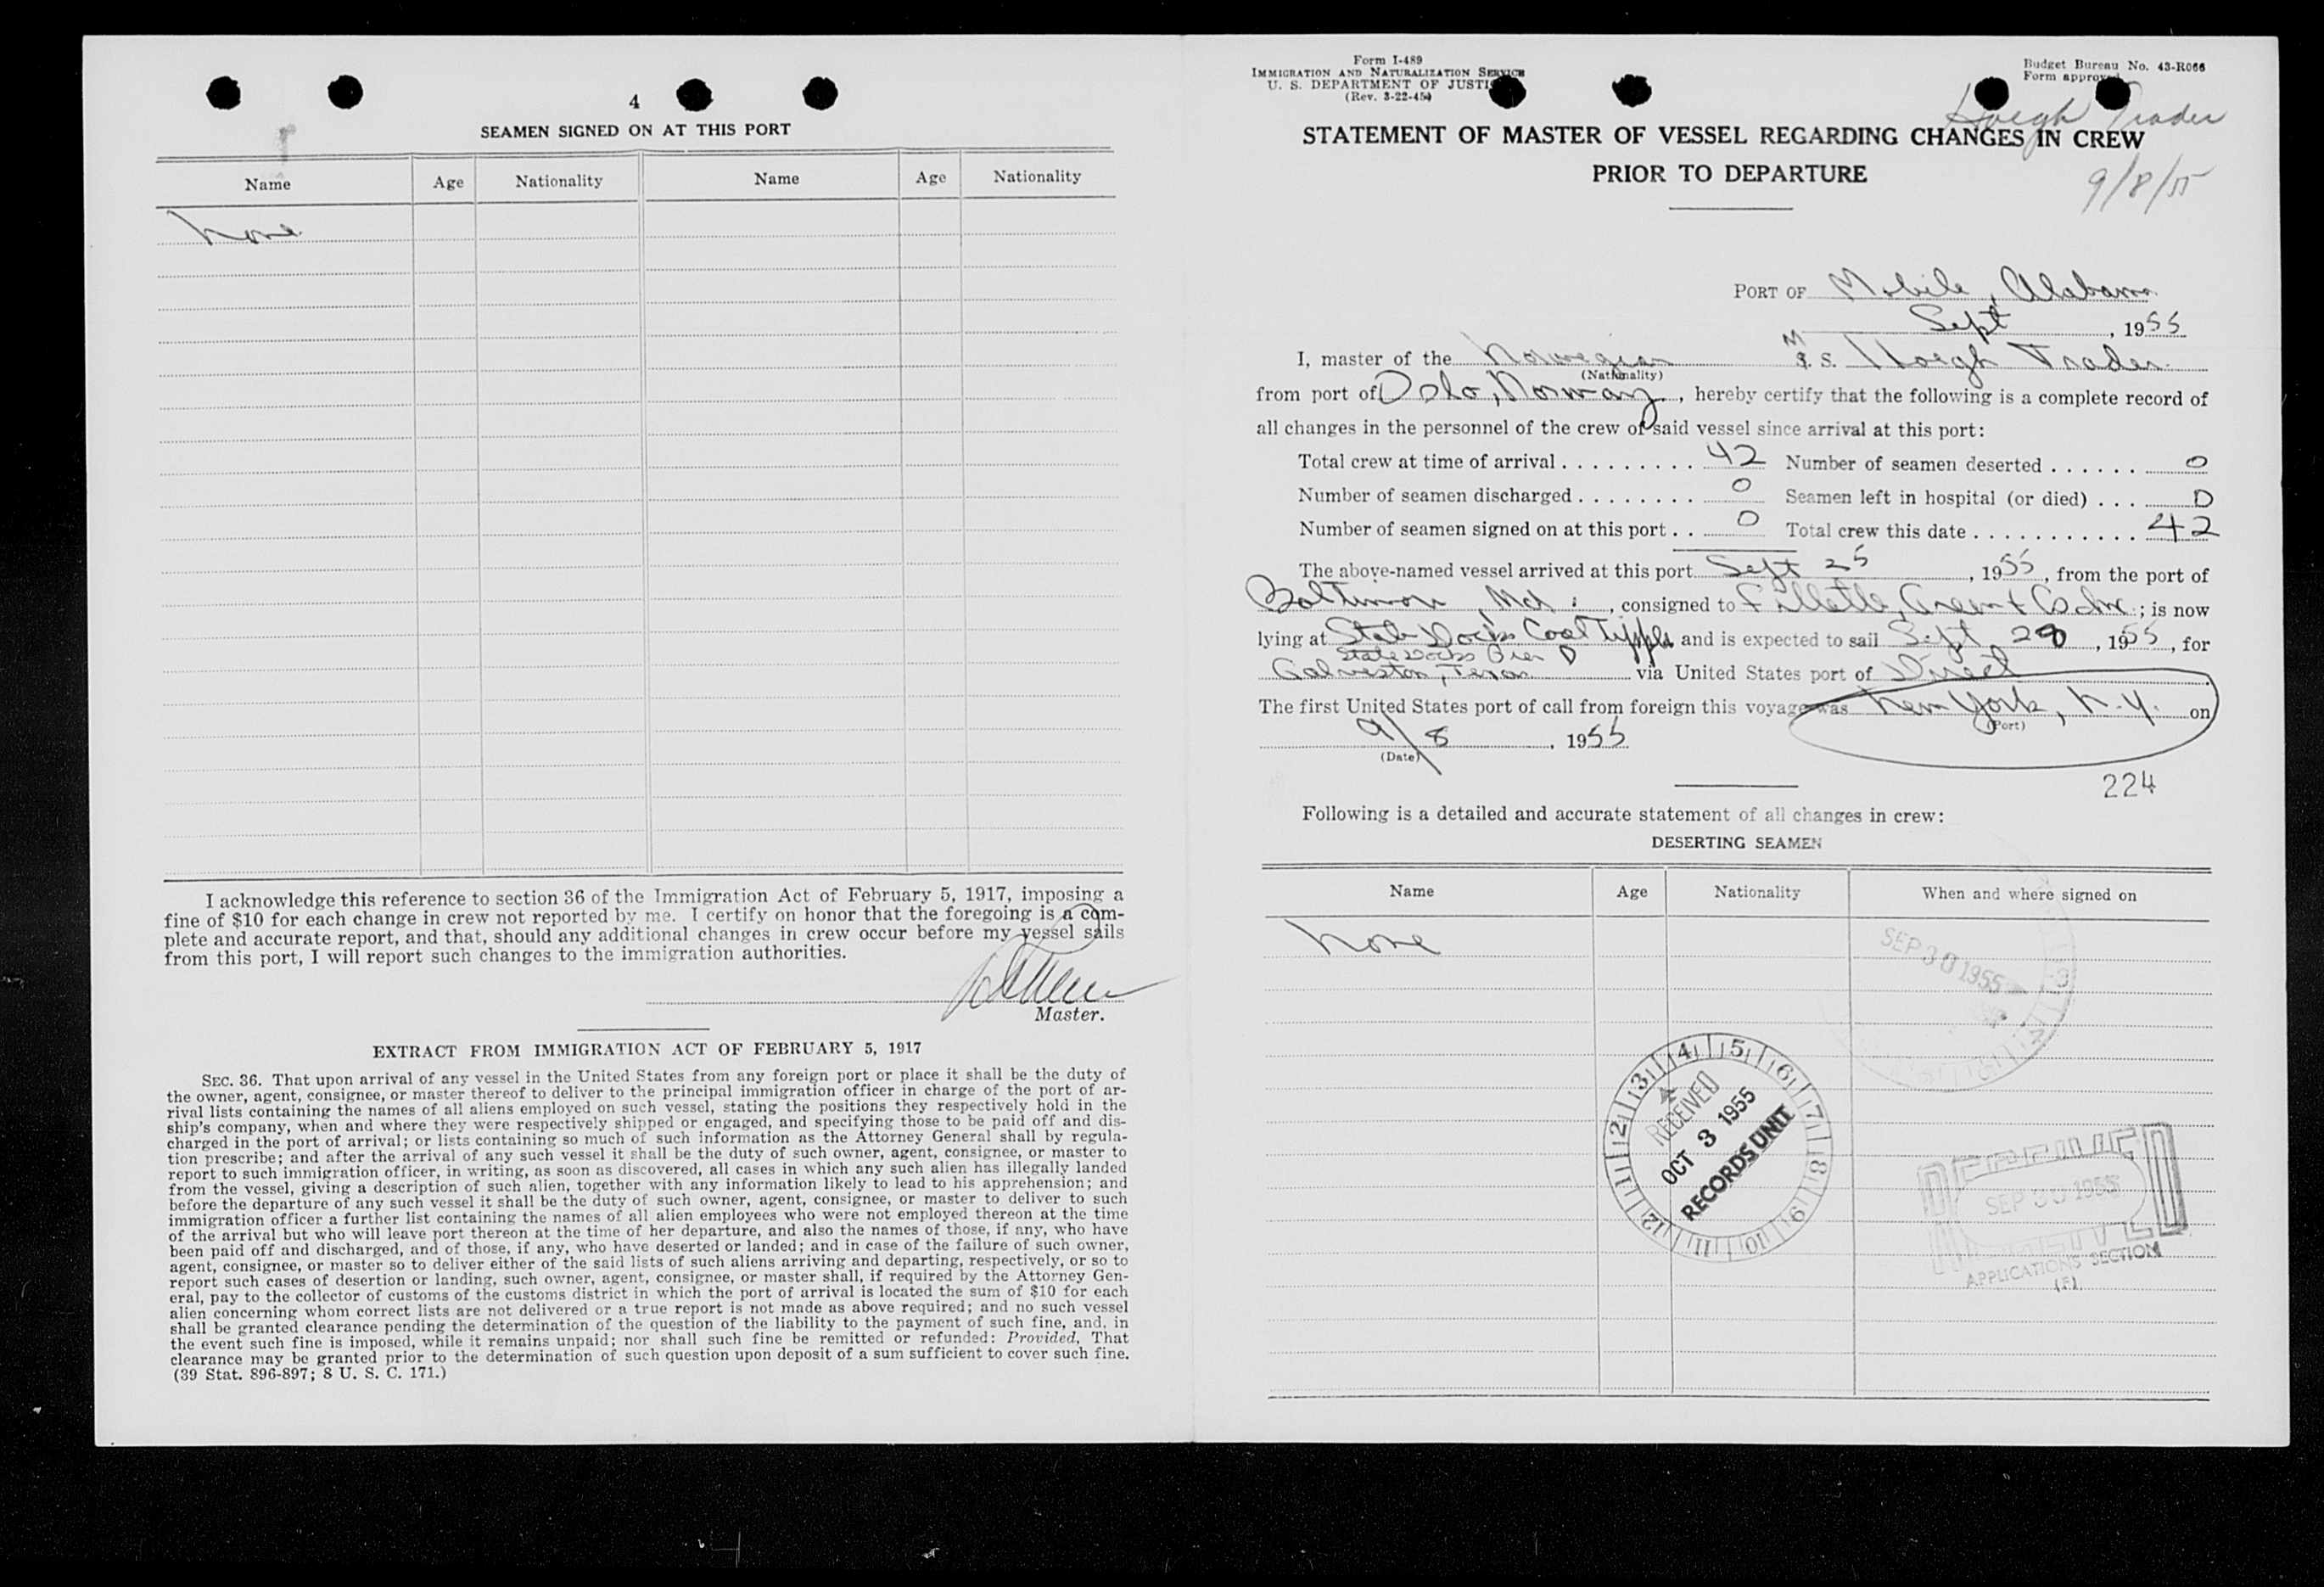 4
SEAMEN SIGNED ON AT THIS PORT
Name Age Nationality Name Age Nationality
None
I acknowledge this reference to section 36 of the Immigration Act of February 5, 1917, imposing a
fine of $10 for each change in crew not reported by me. I certify on honor that the foregoing is a com-
plete and accurate report, and that, should any additional changes in crew occur before my vessel sails
from this port, I will report such changes to the immigration authorities.
Master.
EXTRACT FROM IMMIGRATION ACT OF FEBRUARY 5, 1917
SEC. 36. That upon arrival of any vessel in the United States from any foreign port or place it shall be the duty of
the owner, agent, consignee, or master thereof to deliver to the principal immigration officer in charge of the port of ar-
rival lists containing the names of all aliens employed on such vessel, stating the positions they respectively hold in the
ship's company, when and where they were respectively shipped or engaged, and specifying those to be paid off and dis-
charged in the port of arrival; or lists containing so much of such information as the Attorney General shall by regula-
tion prescribe; and after the arrival of any such vessel it shall be the duty of such owner, agent, consignee, or master to
report to such immigration officer, in writing, as soon as discovered, all cases in which any such alien has illegally landed
from the vessel, giving a description of such alien, together with any information likely to lead to his apprehension; and
before the departure of any such vessel it shall be the duty of such owner, agent, consignee, or master to deliver to such
immigration officer a further list containing the names of all alien employees who were not employed thereon at the time
of the arrival but who will leave port thereon at the time of her departure, and also the names of those, if any, who have
been paid off and discharged, and of those, if any, who have deserted or landed; and in case of the failure of such owner,
agent, consignee, or master so to deliver either of the said lists of such aliens arriving and departing, respectively, or so to
report such cases of desertion or landing, such owner, agent, consignee, or master shall, if required by the Attorney Gen-
eral, pay to the collector of customs of the customs district in which the port of arrival is located the sum of $10 for each
alien concerning whom correct lists are not delivered or a true report is not made as above required; and no such vessel
shall be granted clearance pending the determination of the question of the liability to the payment of such fine, and, in
the event such fine is imposed, while it remains unpaid; nor shall such fine be remitted or refunded: Provided, That
clearance may be granted prior to the determination of such question upon deposit of a sum sufficient to cover such fine.
(39 Stat. 896-897; 8 U. S. C. 171.)
Form I-489
IMMIGRATION AND NATURALIZATION SERVICE
U. S. DEPARTMENT OF JUSTI
(Rev. 3-22-45)
Budget Bureau No. 43-R066
Form approved
Hoegh Trader
STATEMENT OF MASTER OF VESSEL REGARDING CHANGES IN CREW
PRIOR TO DEPARTURE
9/8/55
PORT OF Mobile, Alabama
Sept, 1955
I, master of the Norwegian M. S. Hoegh Trader
(Nationality)
from port of Oslo, Norway, hereby certify that the following is a complete record of
all changes in the personnel of the crew of said vessel since arrival at this port:
Total crew at time of arrival . . . . . . . . . 42 Number of seamen deserted . . . . . . 0
Number of seamen discharged . . . . . . . . 0 Seamen left in hospital (or died) . . . 0
Number of seamen signed on at this port . . 0 Total crew this date . . . . . . . . . . . 42
The above-named vessel arrived at this port Sept 25, 1955, from the port of
Baltimore, Md., consigned to Fillette, Green & Co Inc.; is now
lying at State Docks Coal Tipple and is expected to sail Sept 28, 1955, for
State Docks Pier D
Galveston, Texas via United States port of Direct
The first United States port of call from foreign this voyage was New York, N.Y. on
(Port)
9/8, 1955
(Date)
224
Following is a detailed and accurate statement of all changes in crew:
DESERTING SEAMEN
Name Age Nationality When and where signed on
None
SEP 30 1955
RECEIVED
OCT 3 1955
RECORDS UNIT
1 2 3 4 5 6 7 8 9 10 11 12
RECEIVED
SEP 30 1955
APPLICATIONS SECTION